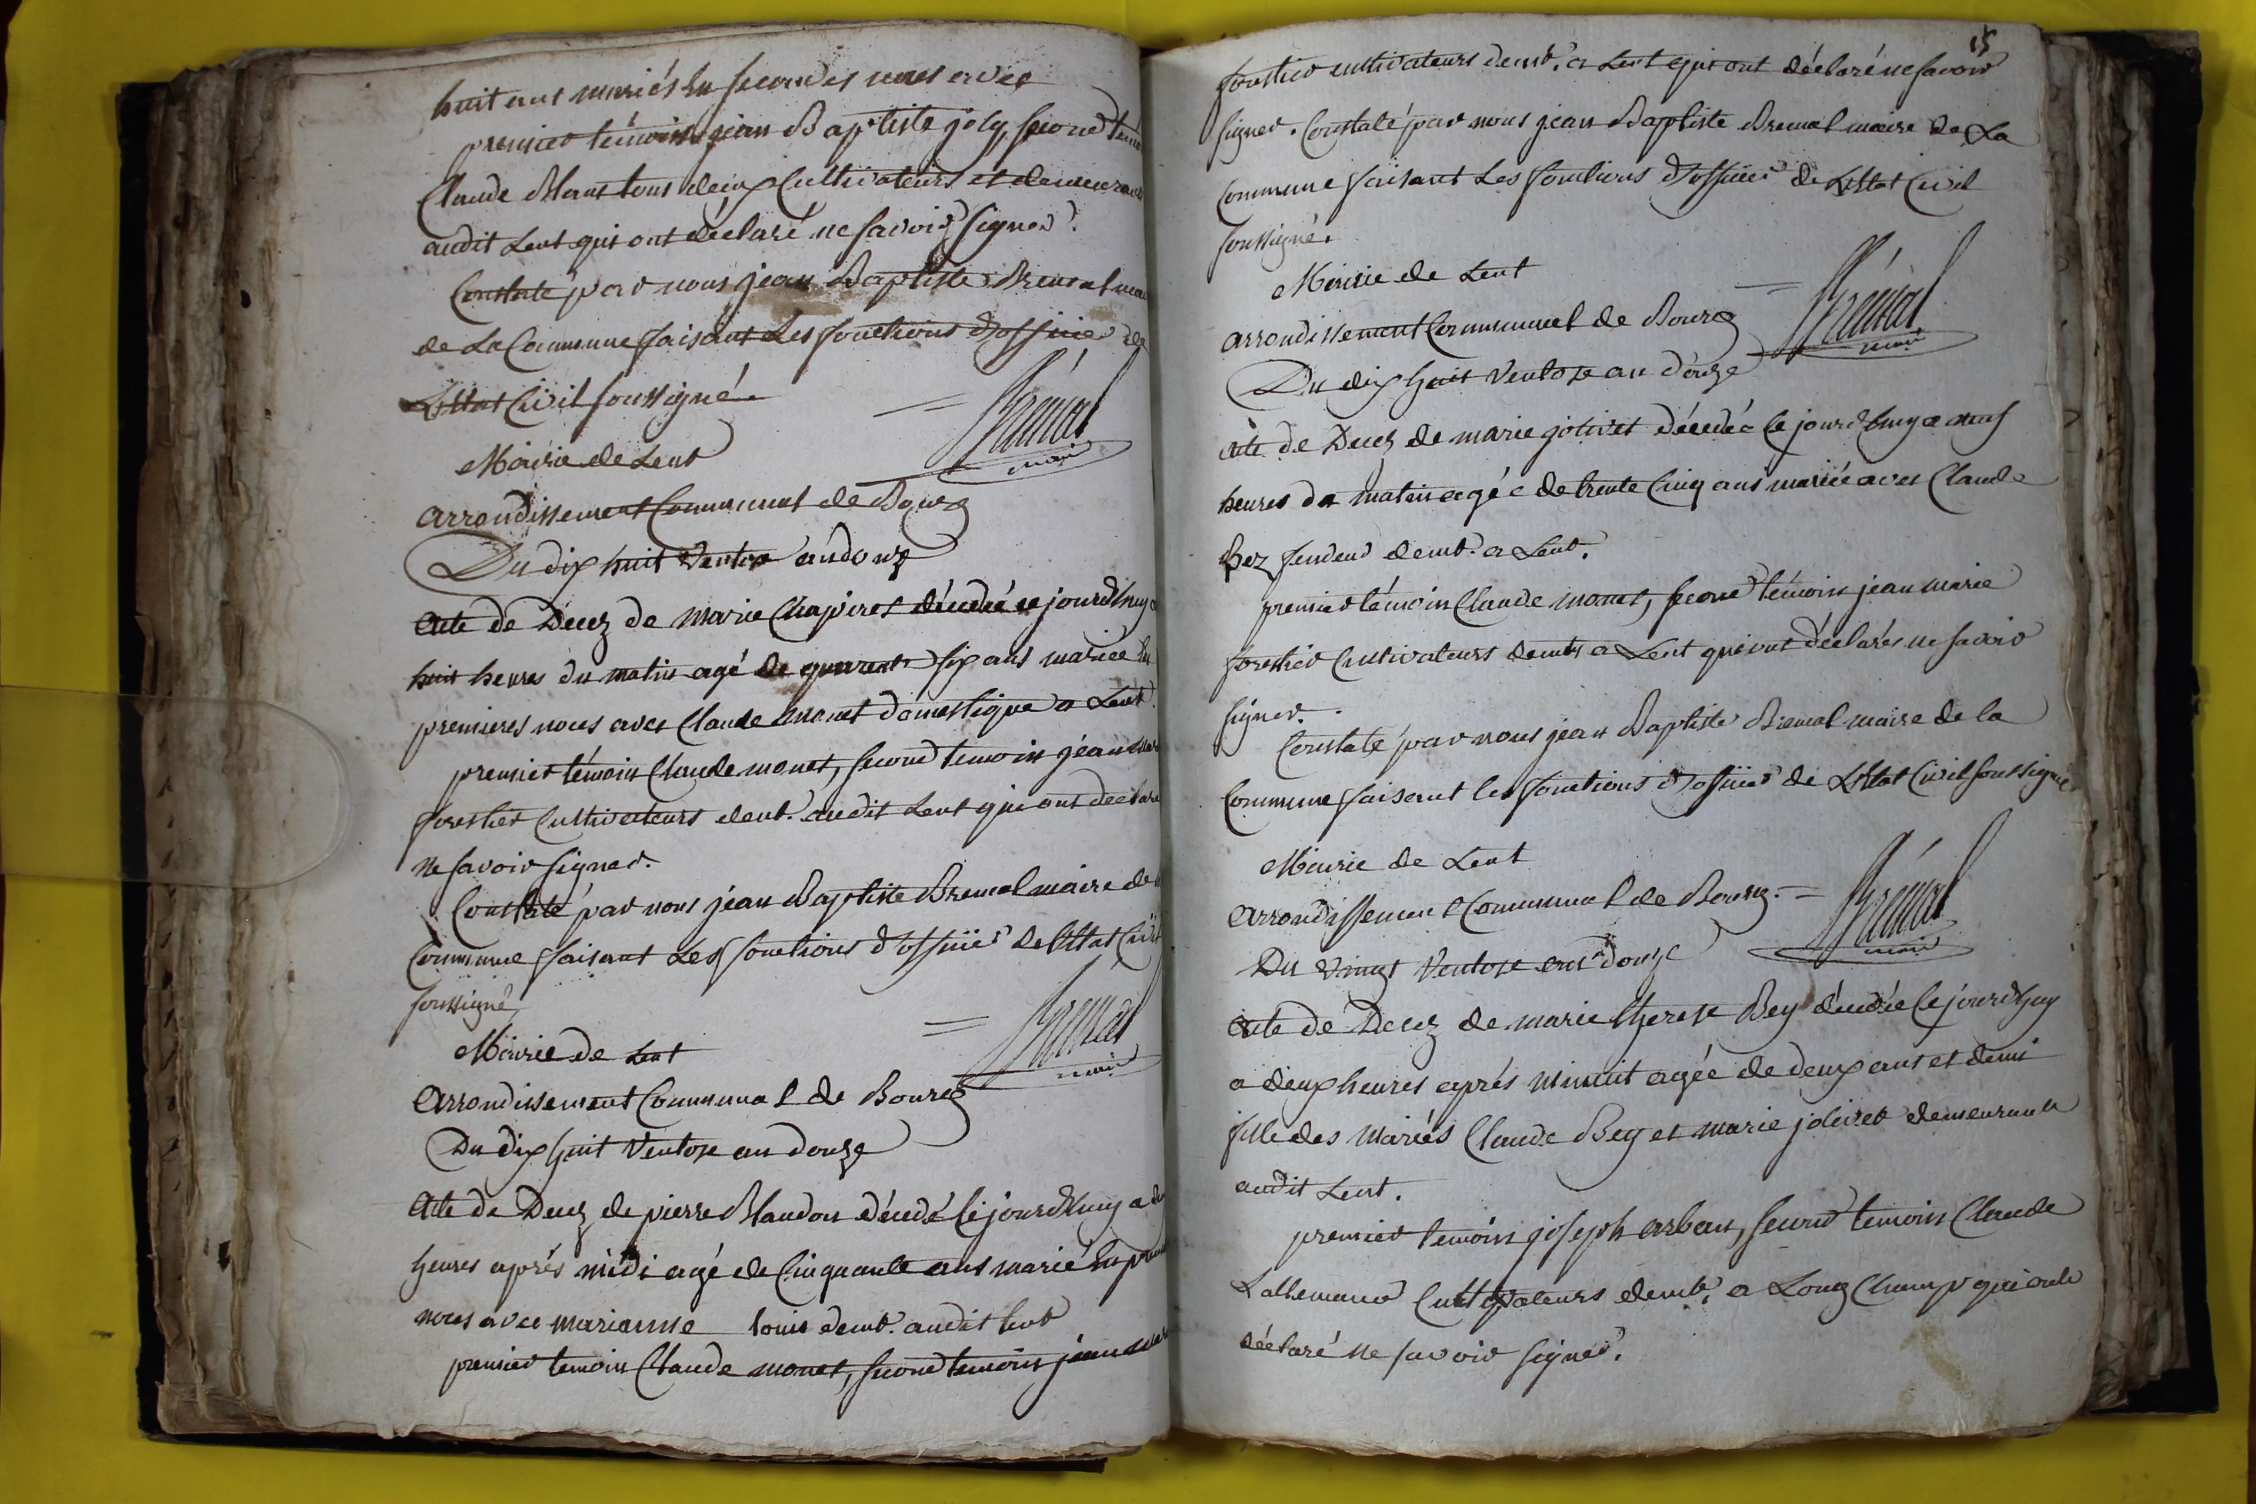 huit ans mariés En secondes noces avec
premier témoin jean Baptiste joly, second temo
Claude Blanc tous deux Cultivateurs et demeurans
audit Lent qui ont déclaré ne savoir signer.
Constaté par nous jean Baptiste Bremal mai
de La Commune faisant Les fonctions d'officier de
L'Etat Civil soussigné.
Brémal
maire
Mairie de Lent
arrondissement Communal de Bourg
Du dix huit Ventose an douze
Acte de Decez de marie Chapires décedée ce jourd'huy a
huit heures du matin agé de quarante six ans mariée En
premieres noces avec Claude monet domestique a Lent.
premier témoin Claude monet, second temoin jean mar
forestier Cultivateurs demt. audit Lent qui ont declaré
ne savoir signer.
Constaté par nous jean Baptiste Bremal maire de
Commune faisant Les fonctions d'officier de l'Etat Civil
soussigné,
Brémal
maire
Mairie de Lent
Arrondissement Communal de Bourg
Du dix huit Ventose an douze
Acte de Decez de pierre Blandon décedé Ce jourd'huy a
heures après midi agé de Cinquante ans marié En prem
noces avec marianne louis demt. audit lent
premier temoin Claude monet, second temoin jean mar
15
forestier cultivateurs demt. a Lent qui ont déclaré ne savoir
signer. Constaté par nous jean Baptiste Bremal maire de La
Commune faisant Les fonctions d'officier de L'Etat Civil
soussigné.
Mairie de Lent
Brémal
maire
arrondissement Communal de Bourg
Du dix huit Ventose an douze
Acte de Decez de marie jolivet décedée Ce jourd'huy a neuf
heures du matin agée de trente Cinq ans mariée avec Claude
Bez fendeur demt. a Lent.
premier témoin Claude monet, second témoin jean marie
forestier Cultivateurs demts a Lent qui ont déclarés ne savoir
signer.
Constaté par nous jean Baptiste Bremal maire de la
Commune faisant les fonctions d'officier de L'Etat Civil soussigné
Mairie de Lent
arrondissement Communal de Bourg.
Brémal
maire
Du vingt Ventose an douze
Acte de Decez de marie therese Bey décedée Ce jourd'huy
a deux heures après minuit agée de deux ans et demi
fille des mariés Claude Bey et marie jolivet demeurants
audit Lent.
premier temoin joseph arban, second temoin Claude
Lallemand Cultivateurs demt. a Long Champ qui ont
déclaré ne savoir signer.